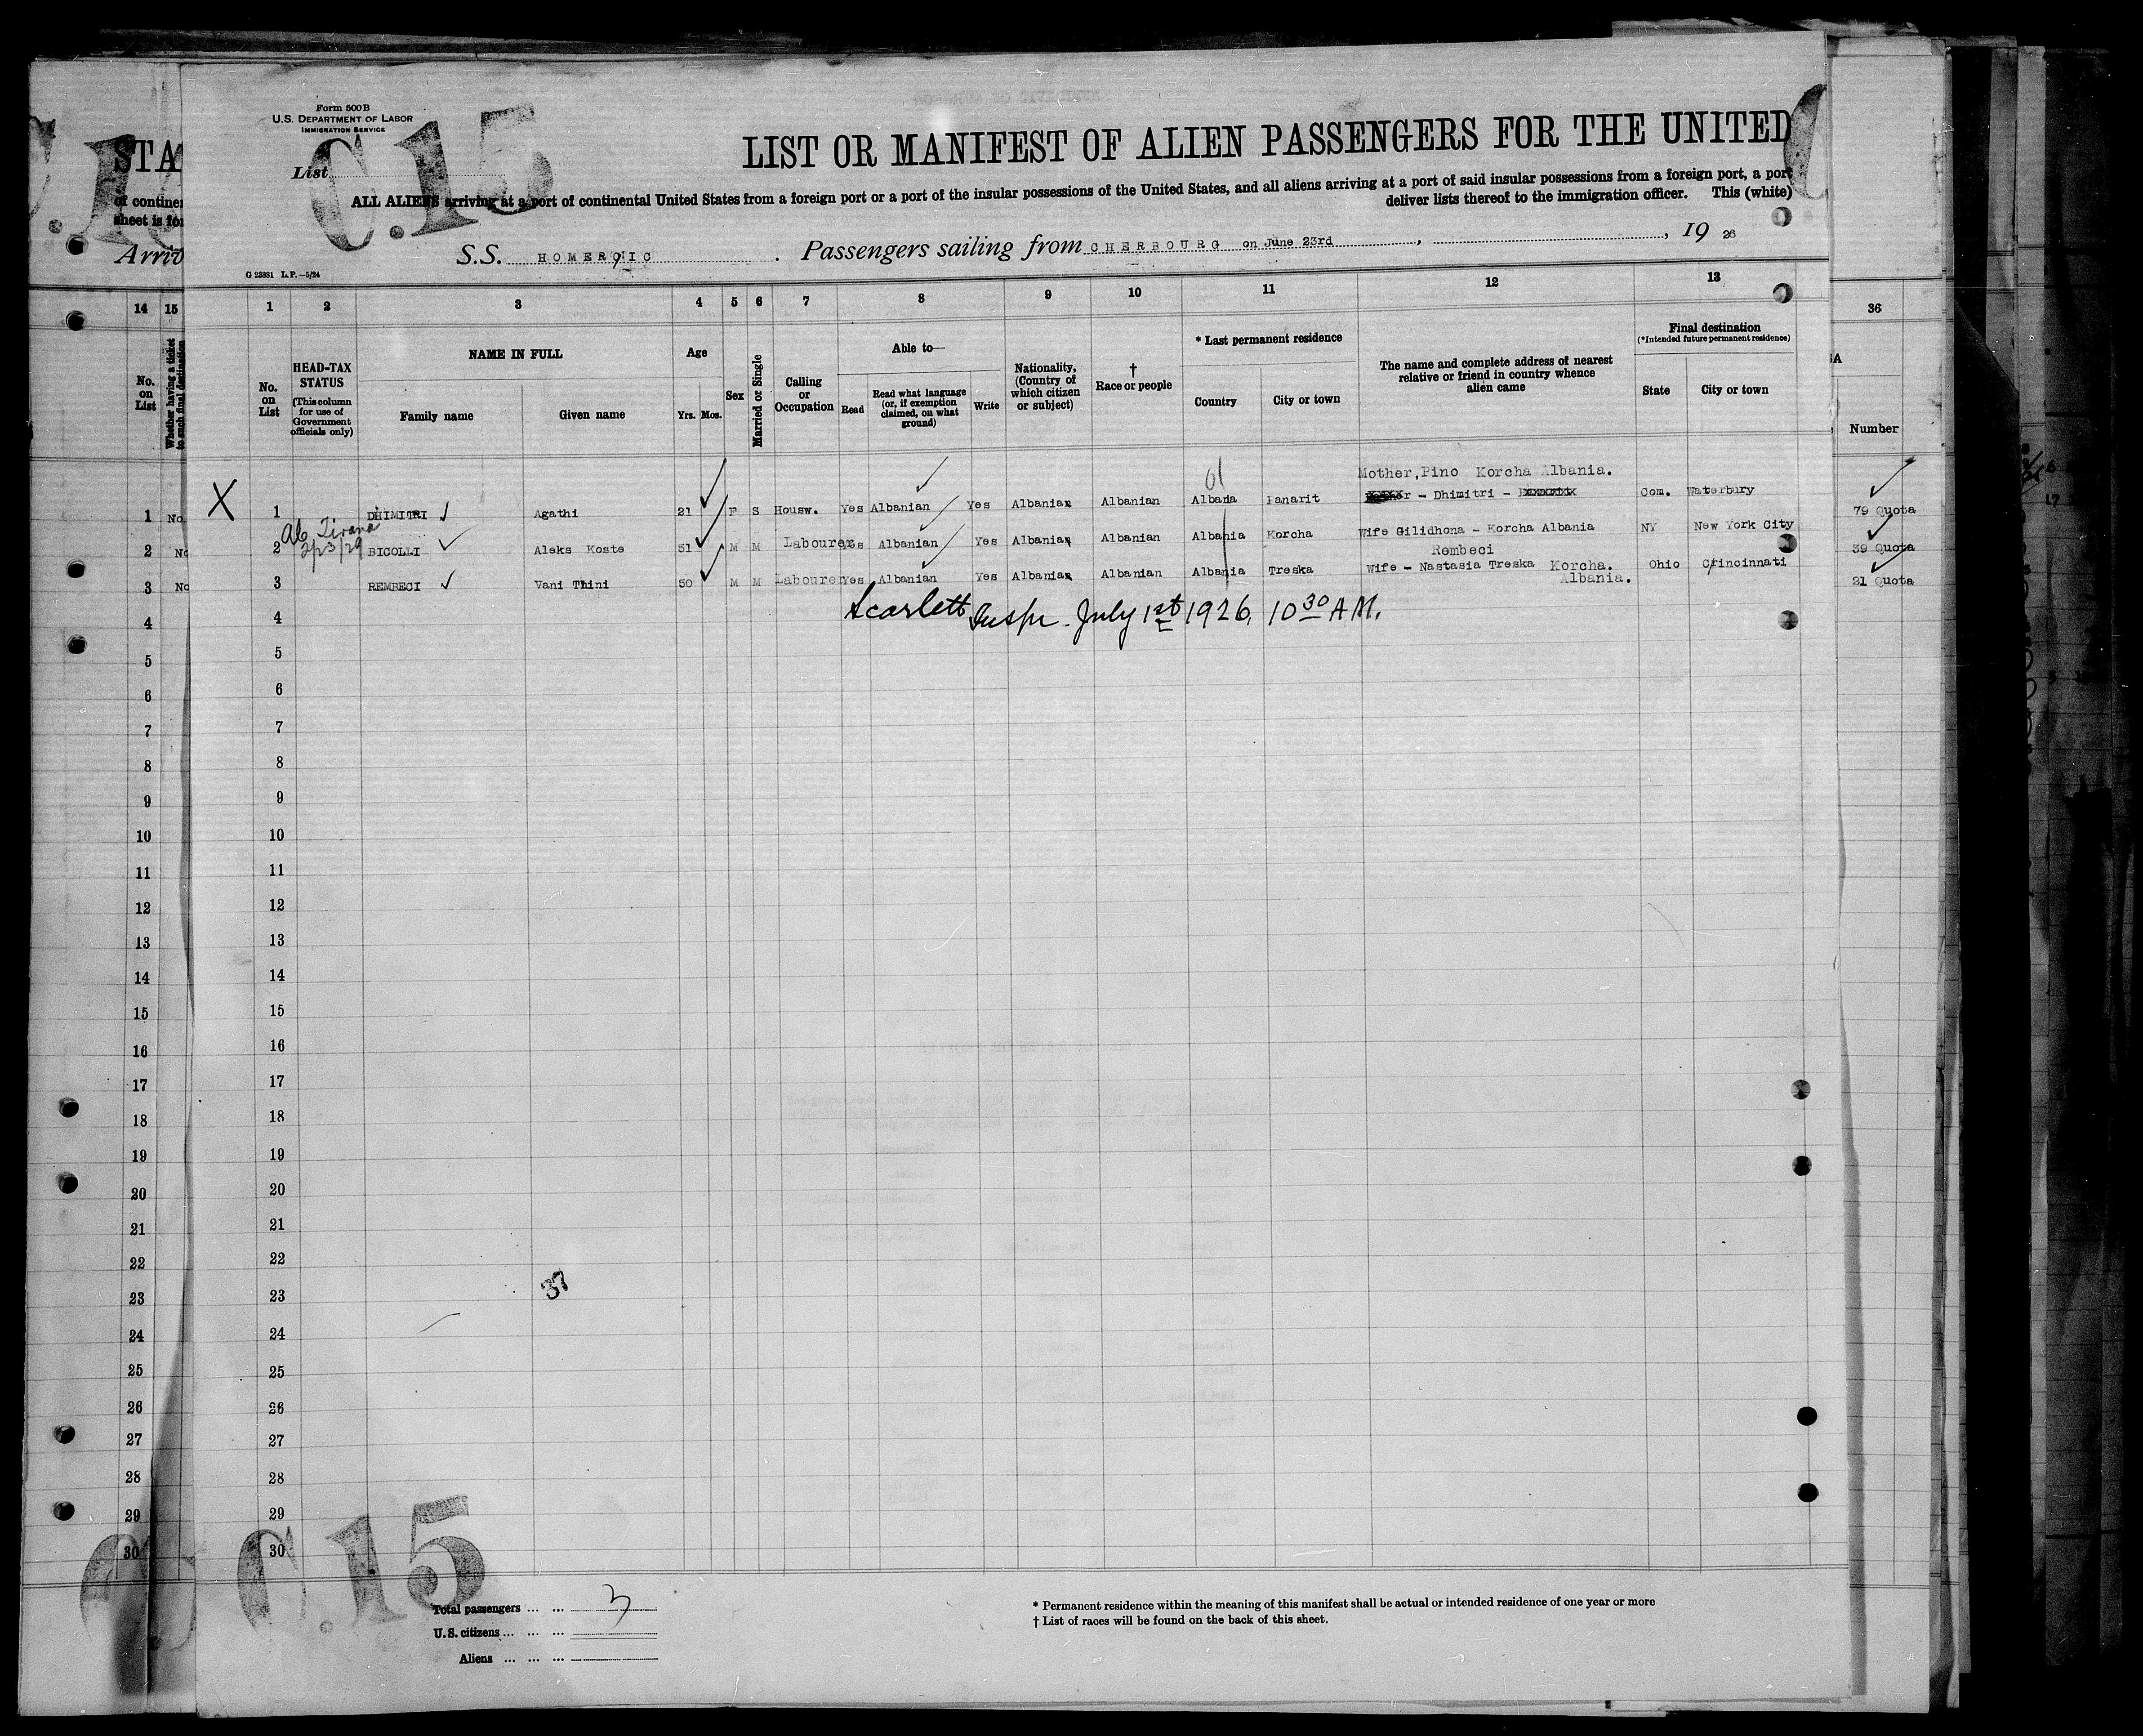 Form 500 B
U.S. DEPARTMENT OF LABOR
IMMIGRATION SERVICE
C.15
List
LIST OR MANIFEST OF ALIEN PASSENGERS FOR THE UNITED
STA
ALL ALIENS arriving at a port of continental United States from a foreign port or a port of the insular possessions of the United States, and all aliens arriving at a port of said insular possessions from a foreign port, a port
of continen
deliver lists thereof to the immigration officer. This (white)
sheet is for
S.S. HOMERIC. Passengers sailing from CHERBOURG on June 23rd, , 19 26
Arriv
G 23831 L.P.—5/24
14 15 1 2 3 4 5 6 7 8 9 10 11 12 13 36
No. on List
Whether having a ticket to such final destination
No. on List
HEAD-TAX STATUS
(This column for use of Government officials only)
NAME IN FULL
Family name
Given name
Age
Yrs. Mos.
Sex
Married or Single
Calling or Occupation
Able to—
Read
Read what language (or, if exemption claimed, on what ground)
Write
Nationality, (Country of which citizen or subject)
† Race or people
* Last permanent residence
Country
City or town
The name and complete address of nearest relative or friend in country whence alien came
Final destination
(*Intended future permanent residence)
State
City or town
Number
Mother, Pino Korcha Albania.
1 No X 1 DHIMITRI Agathi 21 F S Housw. Yes Albanian Yes Albanian Albanian Albania Panarit - Dhimitri - Con. Waterbury 79 Quota
Ab Tirana
2/23/29
2 No 2 BICOLLI Aleks Koste 51 M M Labourer Yes Albanian Yes Albanian Albanian Albania Korcha Wife Gilidhona - Korcha Albania NY New York City 39 Quota
Rembeci
3 No 3 REMBECI Vani Thini 50 M M Labourer Yes Albanian Yes Albanian Albanian Albania Treska Wife - Nastasia Treska Korcha. Ohio Cincinnati 21 Quota
Albania.
Scarlett Inspr. July 1st 1926, 10 30 A M.
4 4
5 5
6 6
7 7
8 8
9 9
10 10
11 11
12 12
13 13
14 14
15 15
16 16
17 17
18 18
19 19
20 20
21 21
22 22
37
23 23
24 24
25 25
26 26
27 27
28 28
29 29
30 30
C.15
Total passengers ... ... 3
U.S. citizens ... ... ...
Aliens ... ... ...
* Permanent residence within the meaning of this manifest shall be actual or intended residence of one year or more
† List of races will be found on the back of this sheet.